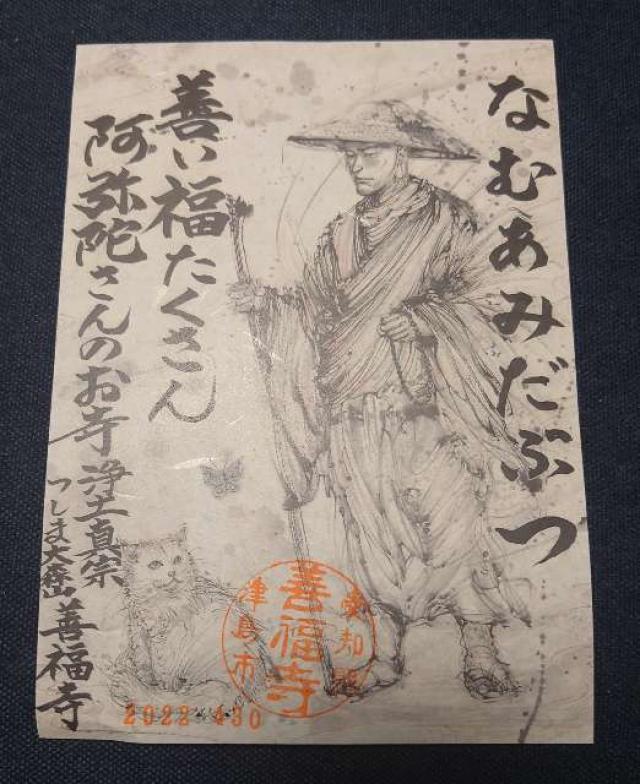 なむあみだぶつ
善い福たくさん
阿弥陀さんのお寺
浄土真宗
つしま大森山
善福寺
愛知県
善福寺
津島市
2022 430